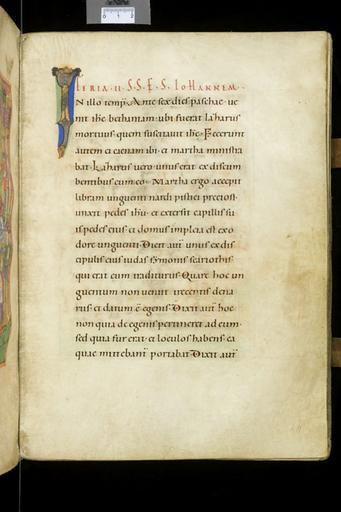 FERIA·II·S·S·E·S·IOHANNEM·
IN illo temp̄· Ante sex dies paschae ue
nit ih̄c bethaniam· ubi fuerat laẑarus
mortuus· quem suscitauit ih̄c· Fecerunt
autem ei caenam ibi· et martha ministra
bat· Laẑarus uero unus erat ex discum
bentibus cum eo· Martha ergo accepit
libram unguenti nardi pistici preciosi·
unxit pedes ih̄u· et extersit capillis su
is pedes eius· et domus impleta est ex o
dore unguenti· Dicit aut̄ unus ex dis
cipulis eius iudas symonis scariothis
qui erat eum traditurus· Quare hoc un
guentum non ueniit trecentis dena
riis· et datum ē egenis· Dixit aut̄ hoc·
non quia de egenis pertineret ad eum·
sed quia fur erat· et loculos habens· ea
quae mittebant̄ portabat· Dixit aut̄